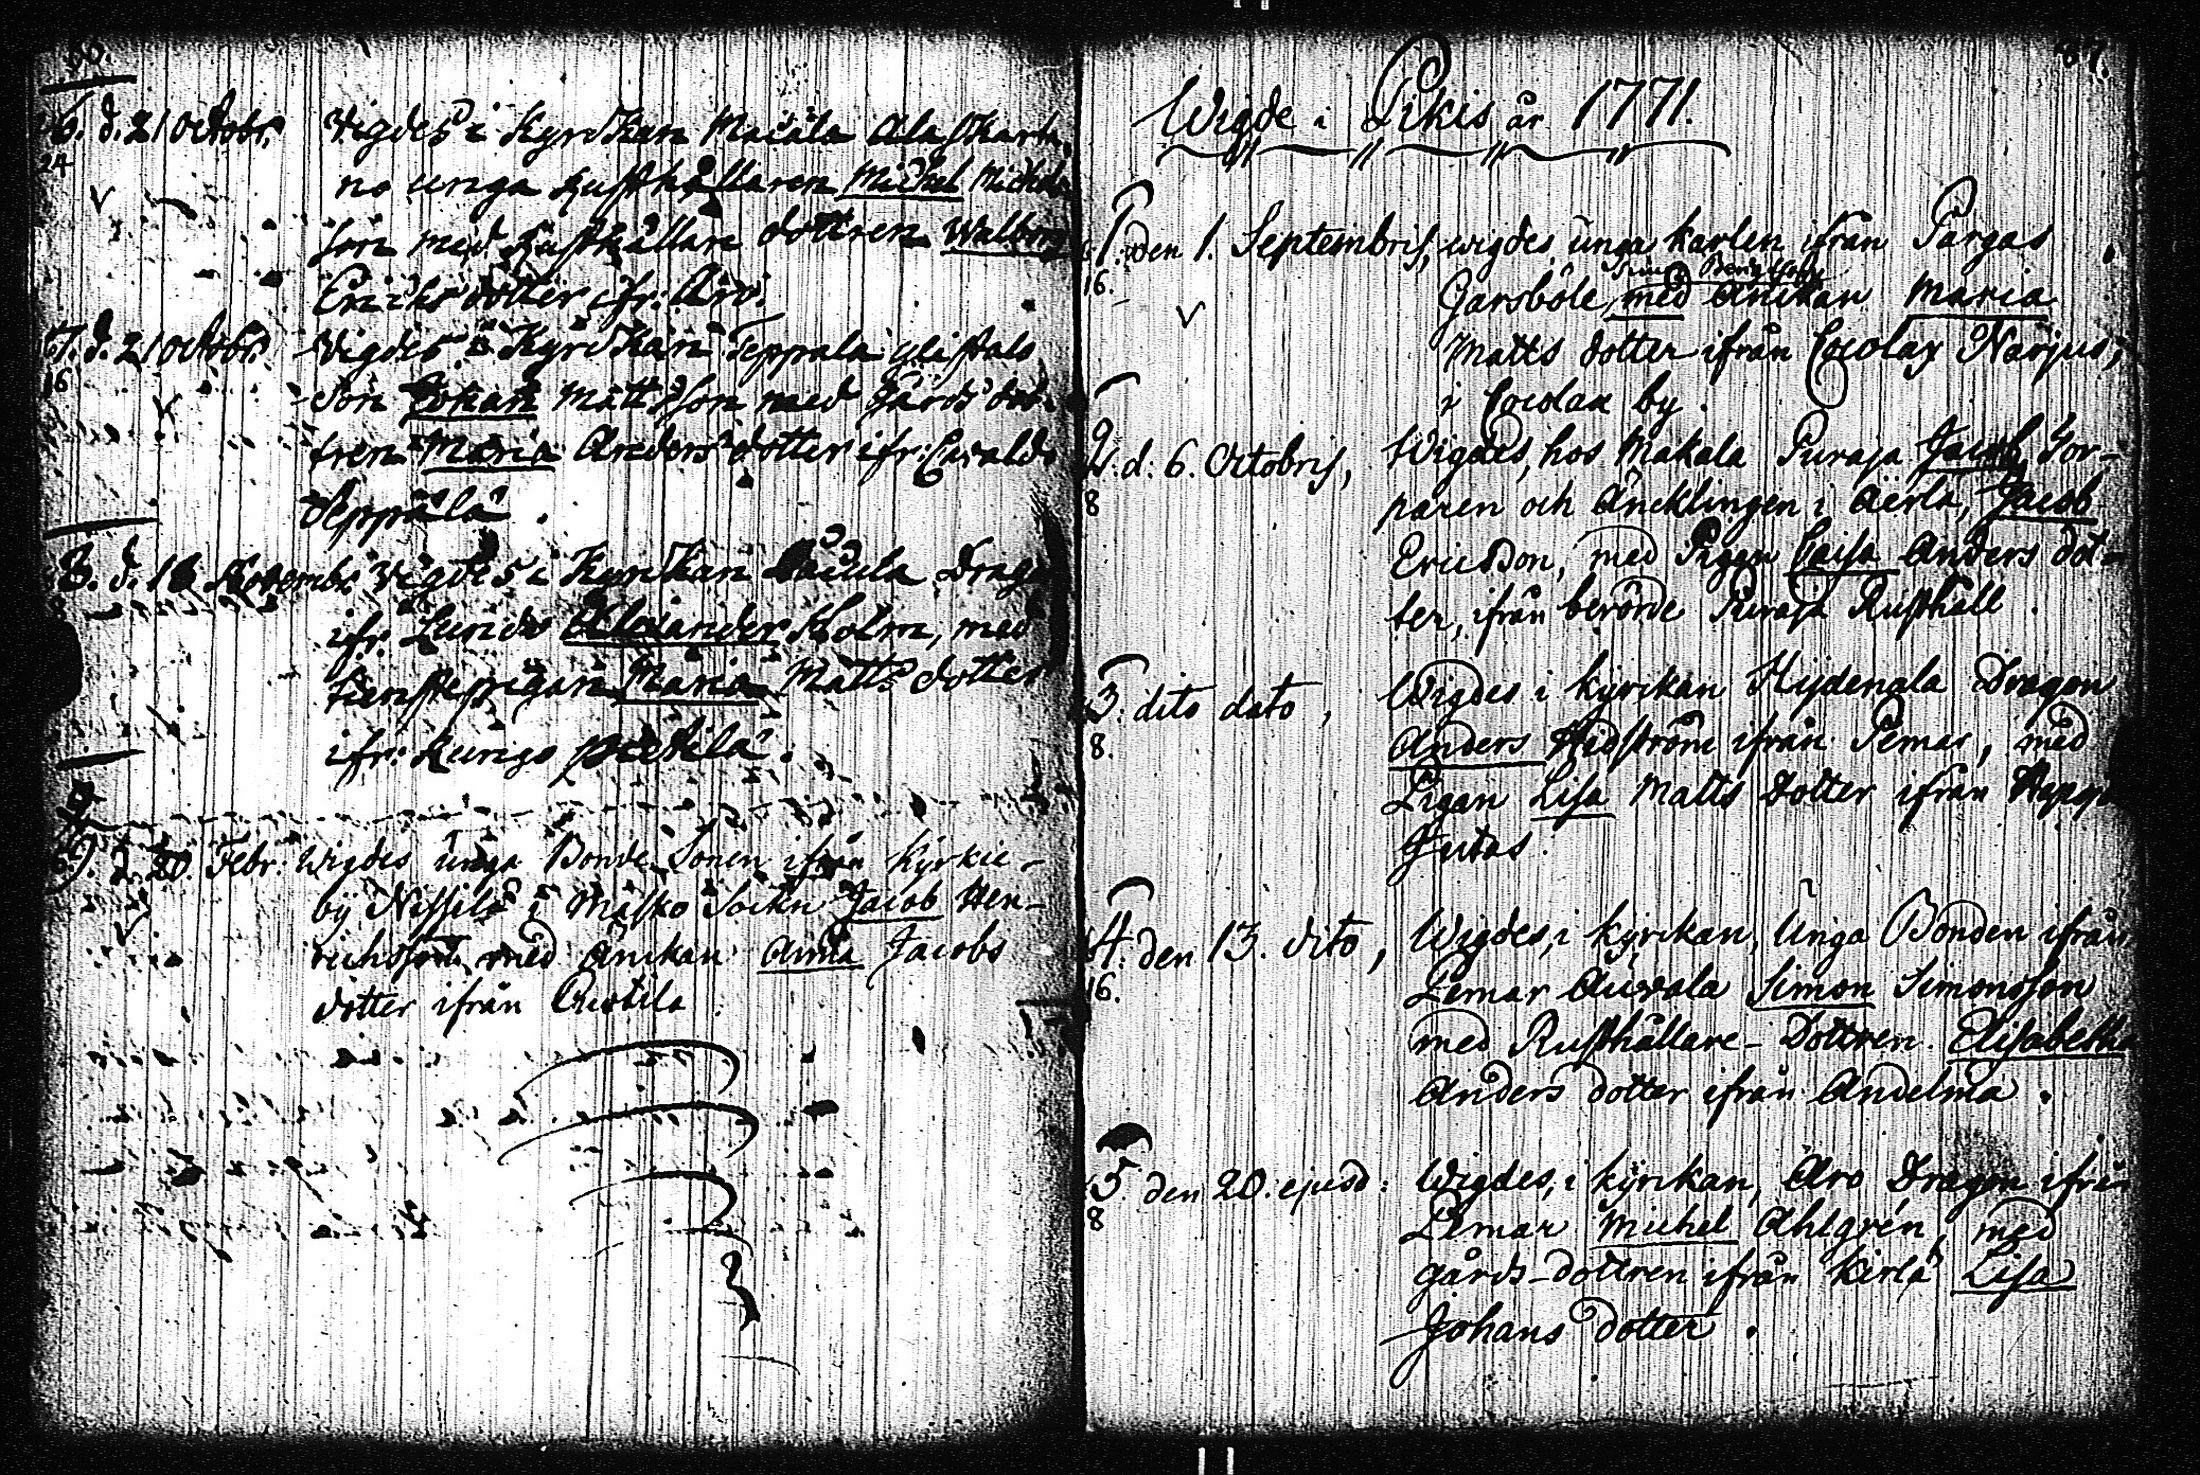 86.
6. d. 21 Octobr. Vigdes i Kyrckan Maiäla Alaskart
24
no unga Rusthållaren Michel Michels
son med Rusthållare dottren Walborg
Erichs dotter ifr: Aro.
7. d. 21 Octobr. Vigdes i Kyrckan Teppala
16
Son Johan Matts Son med Gårds dot-
tren Maria Anders dotter ifr:
Seppälä.
8. d. 18 Novembr. Vigdes i Kyrckan Drag
8
ifr. Lundo Alexander Holm, med
tienstepigan Maria Matts dotter
ifr: Kungs pietilä.
9. d. 20. Febr: Wigdes unga Bonde Sonen ifrån Kyrkie-
by Nissilä i Masko Sockn Jacob Hen-
richsson med änckan Anna Jacobs
dotter ifrån Cristila
87.
Wigde i Pikis år 1771.
1. den 1. Septembris, wigdes unga karlen ifrån Pargas
Simon Bengtsson
16. Garsböle med änckan Maria
Matts dotter ifrån Cocolax Närjus,
i Cocolax by.
2. d. 6. Octobris, Wigdes, hos Makala Puraja Jacob, Tor-
8 paren och Äncklingen i Aërla, Jacob
Ericsson, med Pigan Caisa Anders dot-
ter, ifrån berörde Puraja Rusthåll.
3. dito dato, Wigdes i kyrckan Hijdenala Dragon
8. Anders Hidström ifrån Pemar, med
Pigan Lisa Matts dotter ifrån
Jutas.
4. den 13. dito, Wigdes, i kyrckan, Unga Bonden ifrån
16. Pemar Auvala Simon Simonsson
med Rusthållare-Dottren Elisabetha
Anders dotter ifrån Andelma.
5. den 20. ejusd: Wigdes, i kyrckan, Aro Dragon ifrån
8 Pemar Michel Ahlgrén, med
gårds-dottren ifrån Kirla Lisa
Johans dotter.